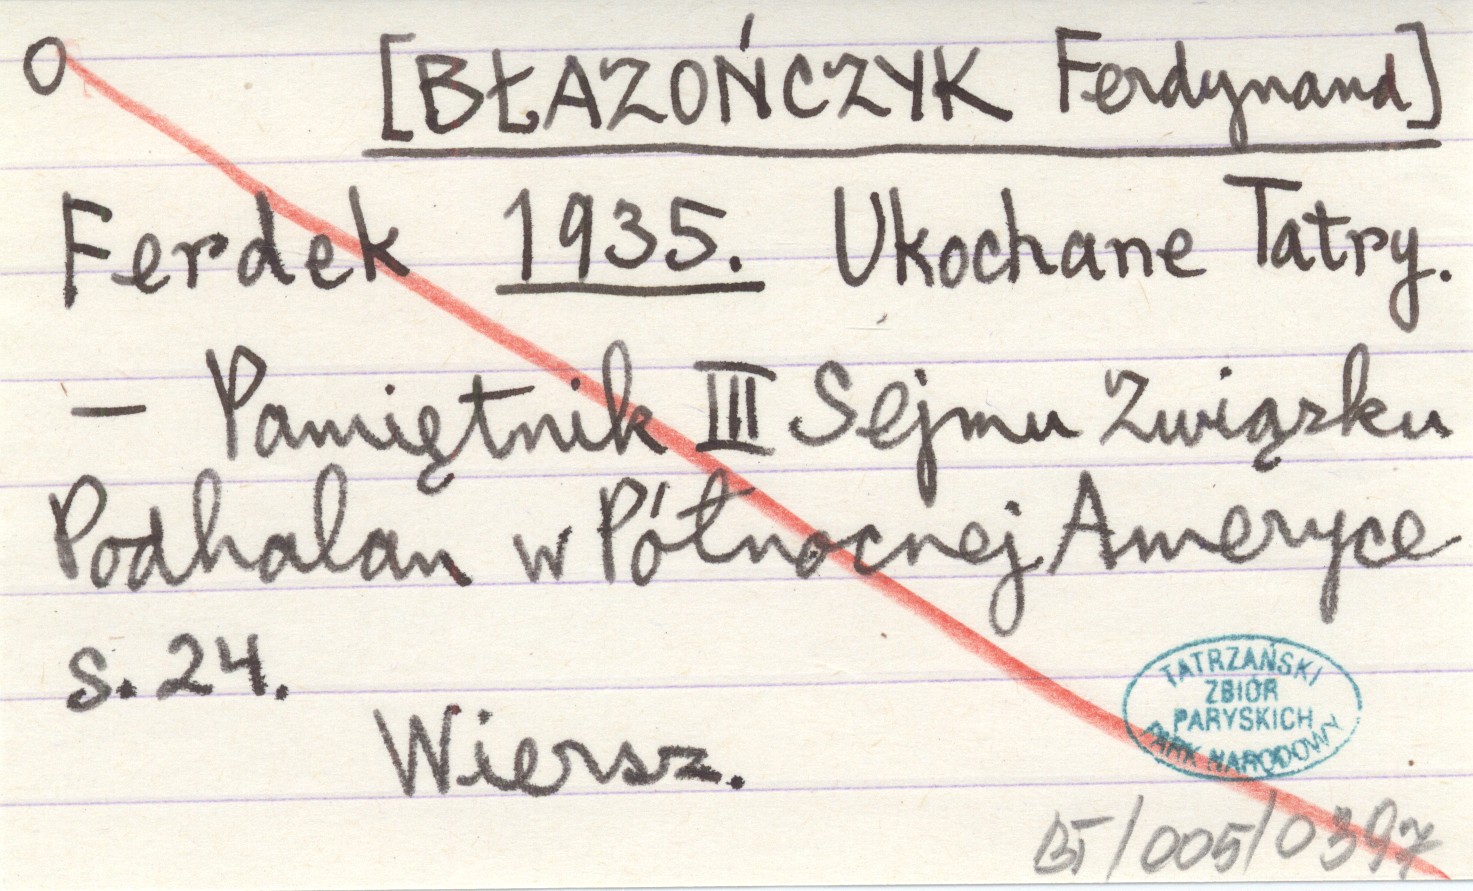 O [BŁAZOŃCZYK Ferdynand]
Ferdek 1935. Ukochane Tatry.
— Pamiętnik III Sejmu Związku
Podhalan w Północnej Ameryce
s. 24.
Wiersz.
TATRZAŃSKI
ZBIÓR
PARYSKICH
PARK NARODOWY
BT/005/0397